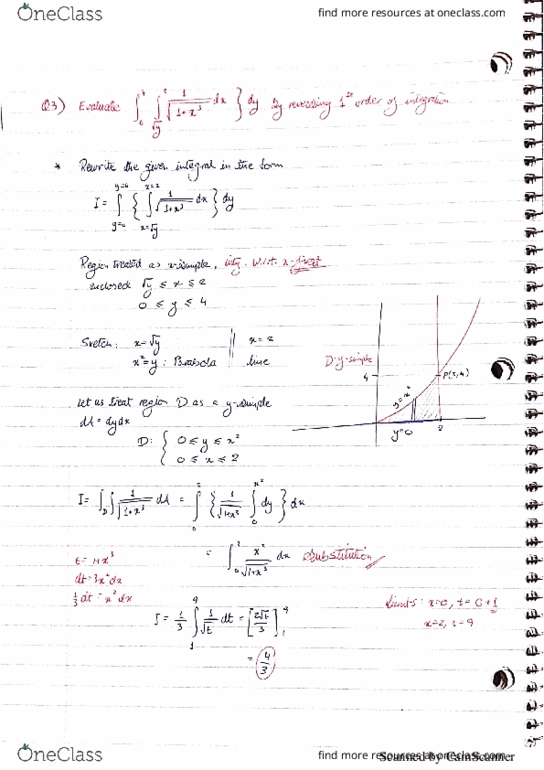 OneClass
find more resources at oneclass.com
Q3) Evaluate ∫₀⁴ ∫_√y ² 1/√(1+x³) dx } dy by reversing order of integration
* Rewrite the given integral in the form
I = ∫_{y=0} { ∫_{x=√y}^{x=2} 1/√(1+x³) dx } dy
Region treated as x-simple, w.r.t. x-first
enclosed √y ≤ x ≤ 2
0 ≤ y ≤ 4
Sketch: x=√y x=2
x²=y: Parabola line
D: y-simple
4
P(2,4)
y=x²
y=0
2
Let us treat region D as a y-simple
dA = dydx
D: { 0 ≤ y ≤ x²
0 ≤ x ≤ 2
I = ∫∫_D 1/√(1+x³) dA = ∫₀² { 1/√(1+x³) ∫₀^{x²} dy } dx
= ∫₀² x²/√(1+x³) dx Substitution
t = 1+x³
dt = 3x²dx
1/3 dt = x²dx
I = 1/3 ∫₁⁹ 1/√t dt = [2√t/3]₁⁹
Limits: x=0, t=0+1
x=2, t=9
= 4/3
OneClass
find more resources at oneclass.com
Scanned by CamScanner